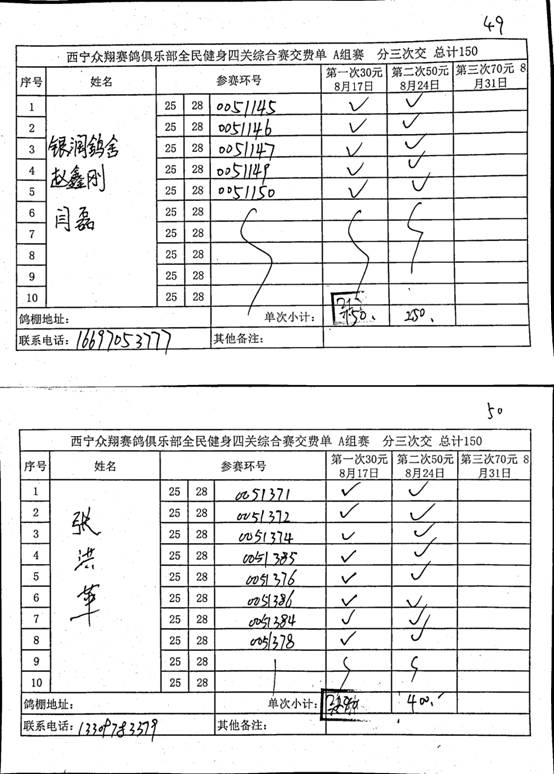 49
西宁众翔赛鸽俱乐部全民健身四关综合赛交费单 A组赛 分三次交 总计150
序号 姓名 参赛环号 第一次30元 8月17日 第二次50元 8月24日 第三次70元 8月31日
1 25 28 0051145 ✓ ✓
2 25 28 0051146 ✓ ✓
3 银润鸽舍 25 28 0051147 ✓ ✓
4 赵鑫刚 25 28 0051149 ✓ ✓
5 25 28 0051150 ✓ ✓
6 闫磊 25 28
7 25 28
8 25 28
9 25 28
10 25 28
鸽棚地址: 单次小计: 150. 250.
联系电话: 16697053777 其他备注:
50
西宁众翔赛鸽俱乐部全民健身四关综合赛交费单 A组赛 分三次交 总计150
序号 姓名 参赛环号 第一次30元 8月17日 第二次50元 8月24日 第三次70元 8月31日
1 25 28 0051371 ✓ ✓
2 张 25 28 0051372 ✓ ✓
3 25 28 0051374 ✓ ✓
4 洪 25 28 0051385 ✓ ✓
5 25 28 0051376 ✓ ✓
6 25 28 0051386 ✓ ✓
7 革 25 28 0051384 ✓ ✓
8 25 28 0051378 ✓ ✓
9 25 28
10 25 28
鸽棚地址: 单次小计: 400.
联系电话: 13309783579 其他备注: